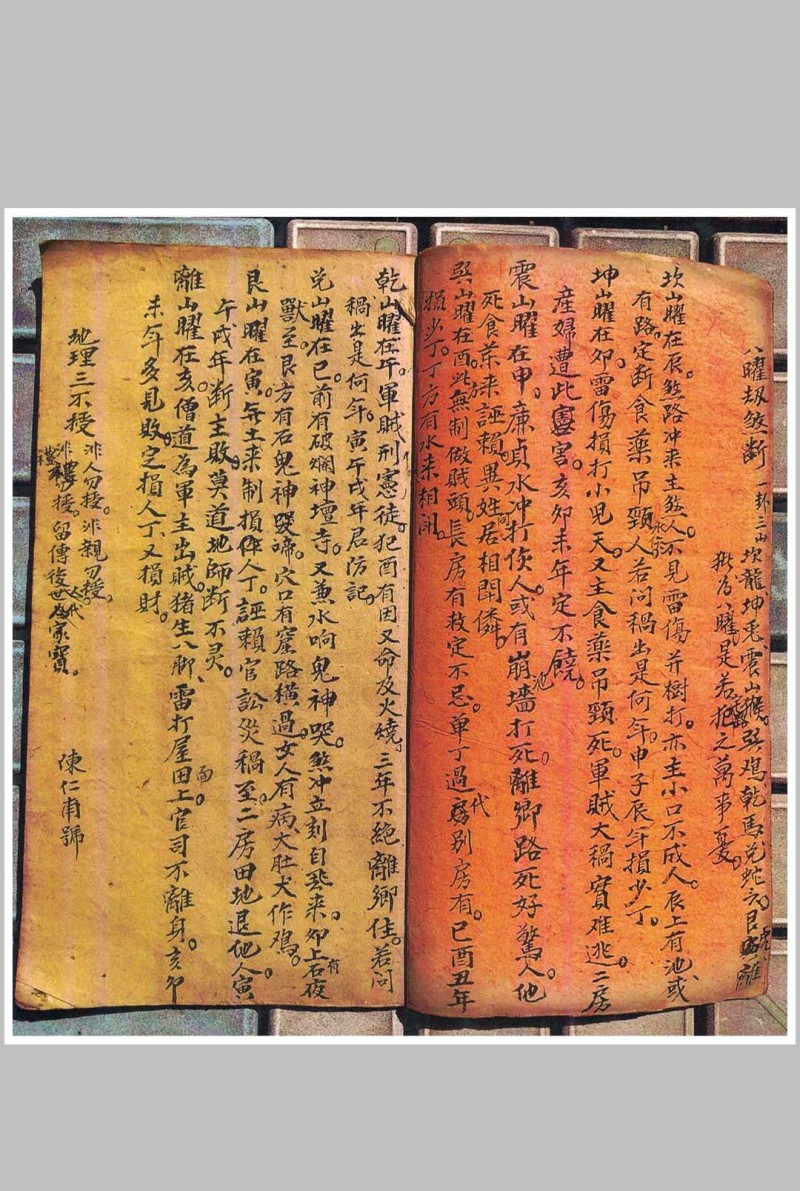 八曜劫煞斷 一卦三山 坎龍坤兎震山猴。巽鸡乾馬兌蛇头。艮虎離
猪為八曜是若犯之萬事憂。
坎山曜在辰。煞路冲来主煞人。不見雷傷并樹打。亦主小口不成人。辰上有池或
有路。定断食藥吊頸人。若问禍出是何年。申子辰年損少丁。
坤山曜在卯。雷傷損打小児夭。又主食藥吊頸死。軍賊大禍實难逃。二房
產婦遭此害。亥卯未年定不饒。
震山曜在申。廉貞水冲打伤人。或有崩墻打死。離鄉路死好驚人。他
死食茶来誣賴。異姓同居相閗憐。
巽山曜在酉。此無制做賊頭。長房有救定不忌。单丁過房别房有。巳酉丑年
損少丁。丁方有水来相
乾山曜在午。軍賊刑憲徒。犯酉有因又命及火燒。三年不絶離鄉住。若问
禍出是何年。寅午戌年君防記。
兌山曜在巳。前有破爛神壇寺。又兼水响鬼神哭。煞冲立刻自来。卯上石有夜
獸至。艮方有石鬼神哭啼。穴口有窟路横過。女人有病大肚犬作鸡。
艮山曜在寅。無土来制損伤人丁。誣賴官訟災禍至。二房田地退他人。寅
午戌年断主敗。莫道地師断不灵。
離山曜在亥。僧道為軍主出賊。猪生八脚、雷打屋面田上。官司不離身。亥卯
未年多見敗。定損人丁又損財。
地理三不授
非人勿授。非親勿授。
非禮勿授。留傳後世代為家寶。
陳仁甫號